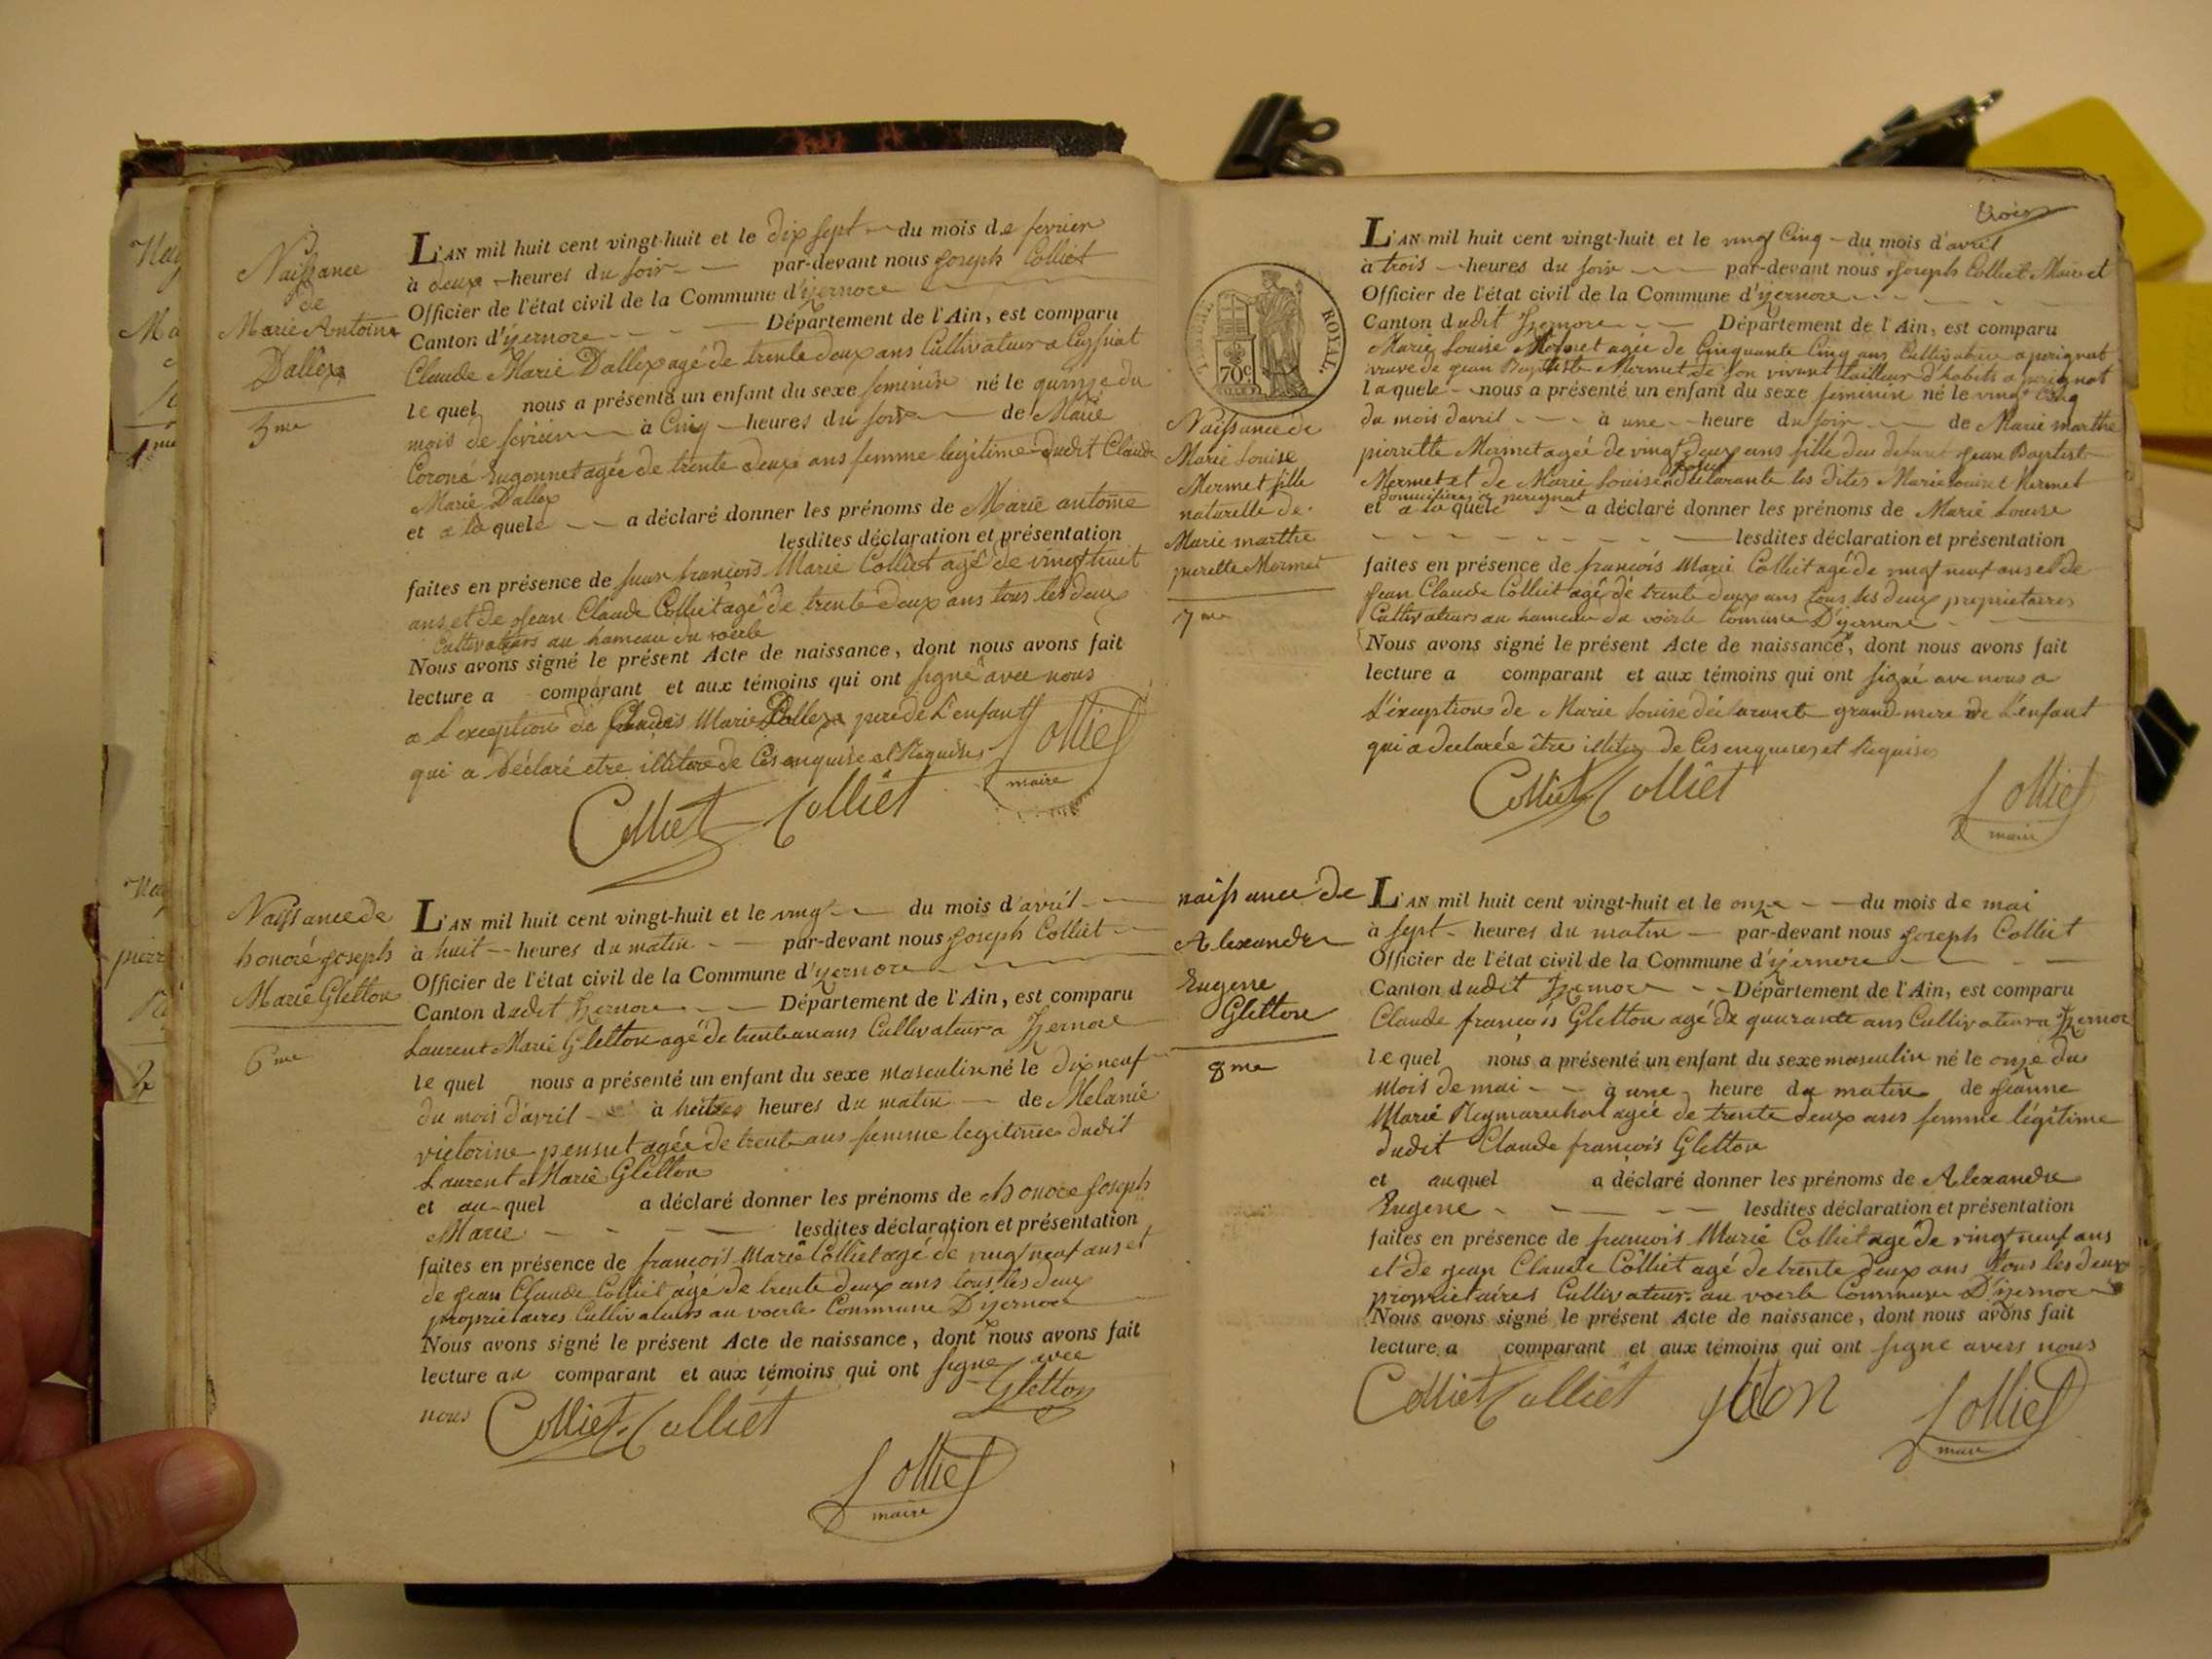 Naissance
de
Marie Antoine
Dallex
5me
L'AN mil huit cent vingt-huit et le dix sept du mois de fevrier
à deux heures du soir par-devant nous Joseph Colliet
Officier de l'état civil de la Commune d'yzernore
Canton d'yzernore Département de l'Ain, est comparu
Claude Marie Dallex agé de trente deux ans Cultivateur a Ceyssiat
le quel nous a présenté un enfant du sexe feminin né le quinze du
mois de fevrier à Cinq heures du soir de Marie
Eugonnet agée de trente deux ans femme legitime dudit Claude
Marie Dallex
et a la quele a déclaré donner les prénoms de Marie antoine
lesdites déclaration et présentation
faites en présence de françois Marie Colliet agé de vingt huit
ans et de Jean Claude Colliet agé de trente deux ans tous les deux
Cultivateurs au hameau du voerle
Nous avons signé le présent Acte de naissance, dont nous avons fait
lecture a comparant et aux témoins qui ont signé avec nous
a L'exception de Claude Marie Dallex pere de L'enfant
qui a déclaré etre illitere de Ces enquise et Requises
Colliet
maire
Colliet Colliet
Naissance de
honoré Joseph
Marie Gletton
6me
L'AN mil huit cent vingt-huit et le vingt du mois d'avril
à huit heures du matin par-devant nous Joseph Colliet
Officier de l'état civil de la Commune d'yzernore
Canton dudit Izernore Département de l'Ain, est comparu
Laurent Marie Gletton agé de trente un ans Cultivateur a Izernore
le quel nous a présenté un enfant du sexe masculin né le dix neuf
du mois d'avril à heures du matin de Melanie
victorine agée de trente ans femme legitime dudit
Laurent Marie Gletton
et au quel a déclaré donner les prénoms de honore Joseph
Marie lesdites déclaration et présentation
faites en présence de françois Marie Colliet agé de vingt neuf ans et
de Jean Claude Colliet agé de trente deux ans tous les deux
proprietaires Cultivateurs au voerle Commune D'yzernore
Nous avons signé le présent Acte de naissance, dont nous avons fait
lecture au comparant et aux témoins qui ont signe avec
nous Colliet Colliet Gletton
Colliet
maire
trois
TIMBRE ROYAL
70c
Naissance de
Marie Louise
Mermet fille
naturelle de
Marie marthe
pierette Mermet
7me
L'AN mil huit cent vingt-huit et le vingt Cinq du mois d'avril
à trois heures du soir par-devant nous Joseph Colliet Maire et
Officier de l'état civil de la Commune d'yzernore
Canton dudit Izernore Département de l'Ain, est comparu
Marie Louise Mermet agée de Cinquante Cinq ans Cultivatrice a perignat
veuve de Jean Baptiste Mermet de son vivant tailleur d'habits a perignat
laquele nous a présenté un enfant du sexe feminin né le vingt Cinq
du mois d'avril à une heure du soir de Marie marthe
pierrette Mermet agée de vingt deux ans fille deu defunt Jean Baptiste
Mermet et de Marie Louise declarante les dites Marie Louise Mermet
domiciliées a perignat
et a la quele a déclaré donner les prénoms de Marie Louise
lesdites déclaration et présentation
faites en présence de françois Marie Colliet agé de vingt neuf ans et de
Jean Claude Colliet agé de trente deux ans tous les deux proprietaires
Cultivateurs au hameau du voerle Comune D'yzernore
Nous avons signé le présent Acte de naissance, dont nous avons fait
lecture a comparant et aux témoins qui ont signé avec nous a
L'exception de Marie Louise déclarante grand mere de L'enfant
qui a declarée être de Ces enquises et Requises
Colliet Colliet
Colliet
maire
naissance de
Alexandre
Eugene
Gletton
8me
L'AN mil huit cent vingt-huit et le onze du mois de mai
à sept heures du matin par-devant nous Joseph Colliet
Officier de l'état civil de la Commune d'yzernore
Canton dudit Izernore Département de l'Ain, est comparu
Claude françois Gletton agé de quarante ans Cultivateur a Izernore
le quel nous a présenté un enfant du sexe masculin né le onze du
Mois de mai à une heure du matin de Jeanne
Marie Reymarechal agée de trente deux ans femme légitime
dudit Claude françois Gletton
et auquel a déclaré donner les prénoms de Alexandre
Eugene lesdites déclaration et présentation
faites en présence de françois Marie Colliet agé de vingt neuf ans
et de Jean Claude Colliet agé de trente deux ans Tous les deux
proprietaires Cultivateurs au voerle Commune D'yzernore
Nous avons signé le présent Acte de naissance, dont nous avons fait
lecture a comparant et aux témoins qui ont signe avecs nous
Colliet Colliet Colliet
maire